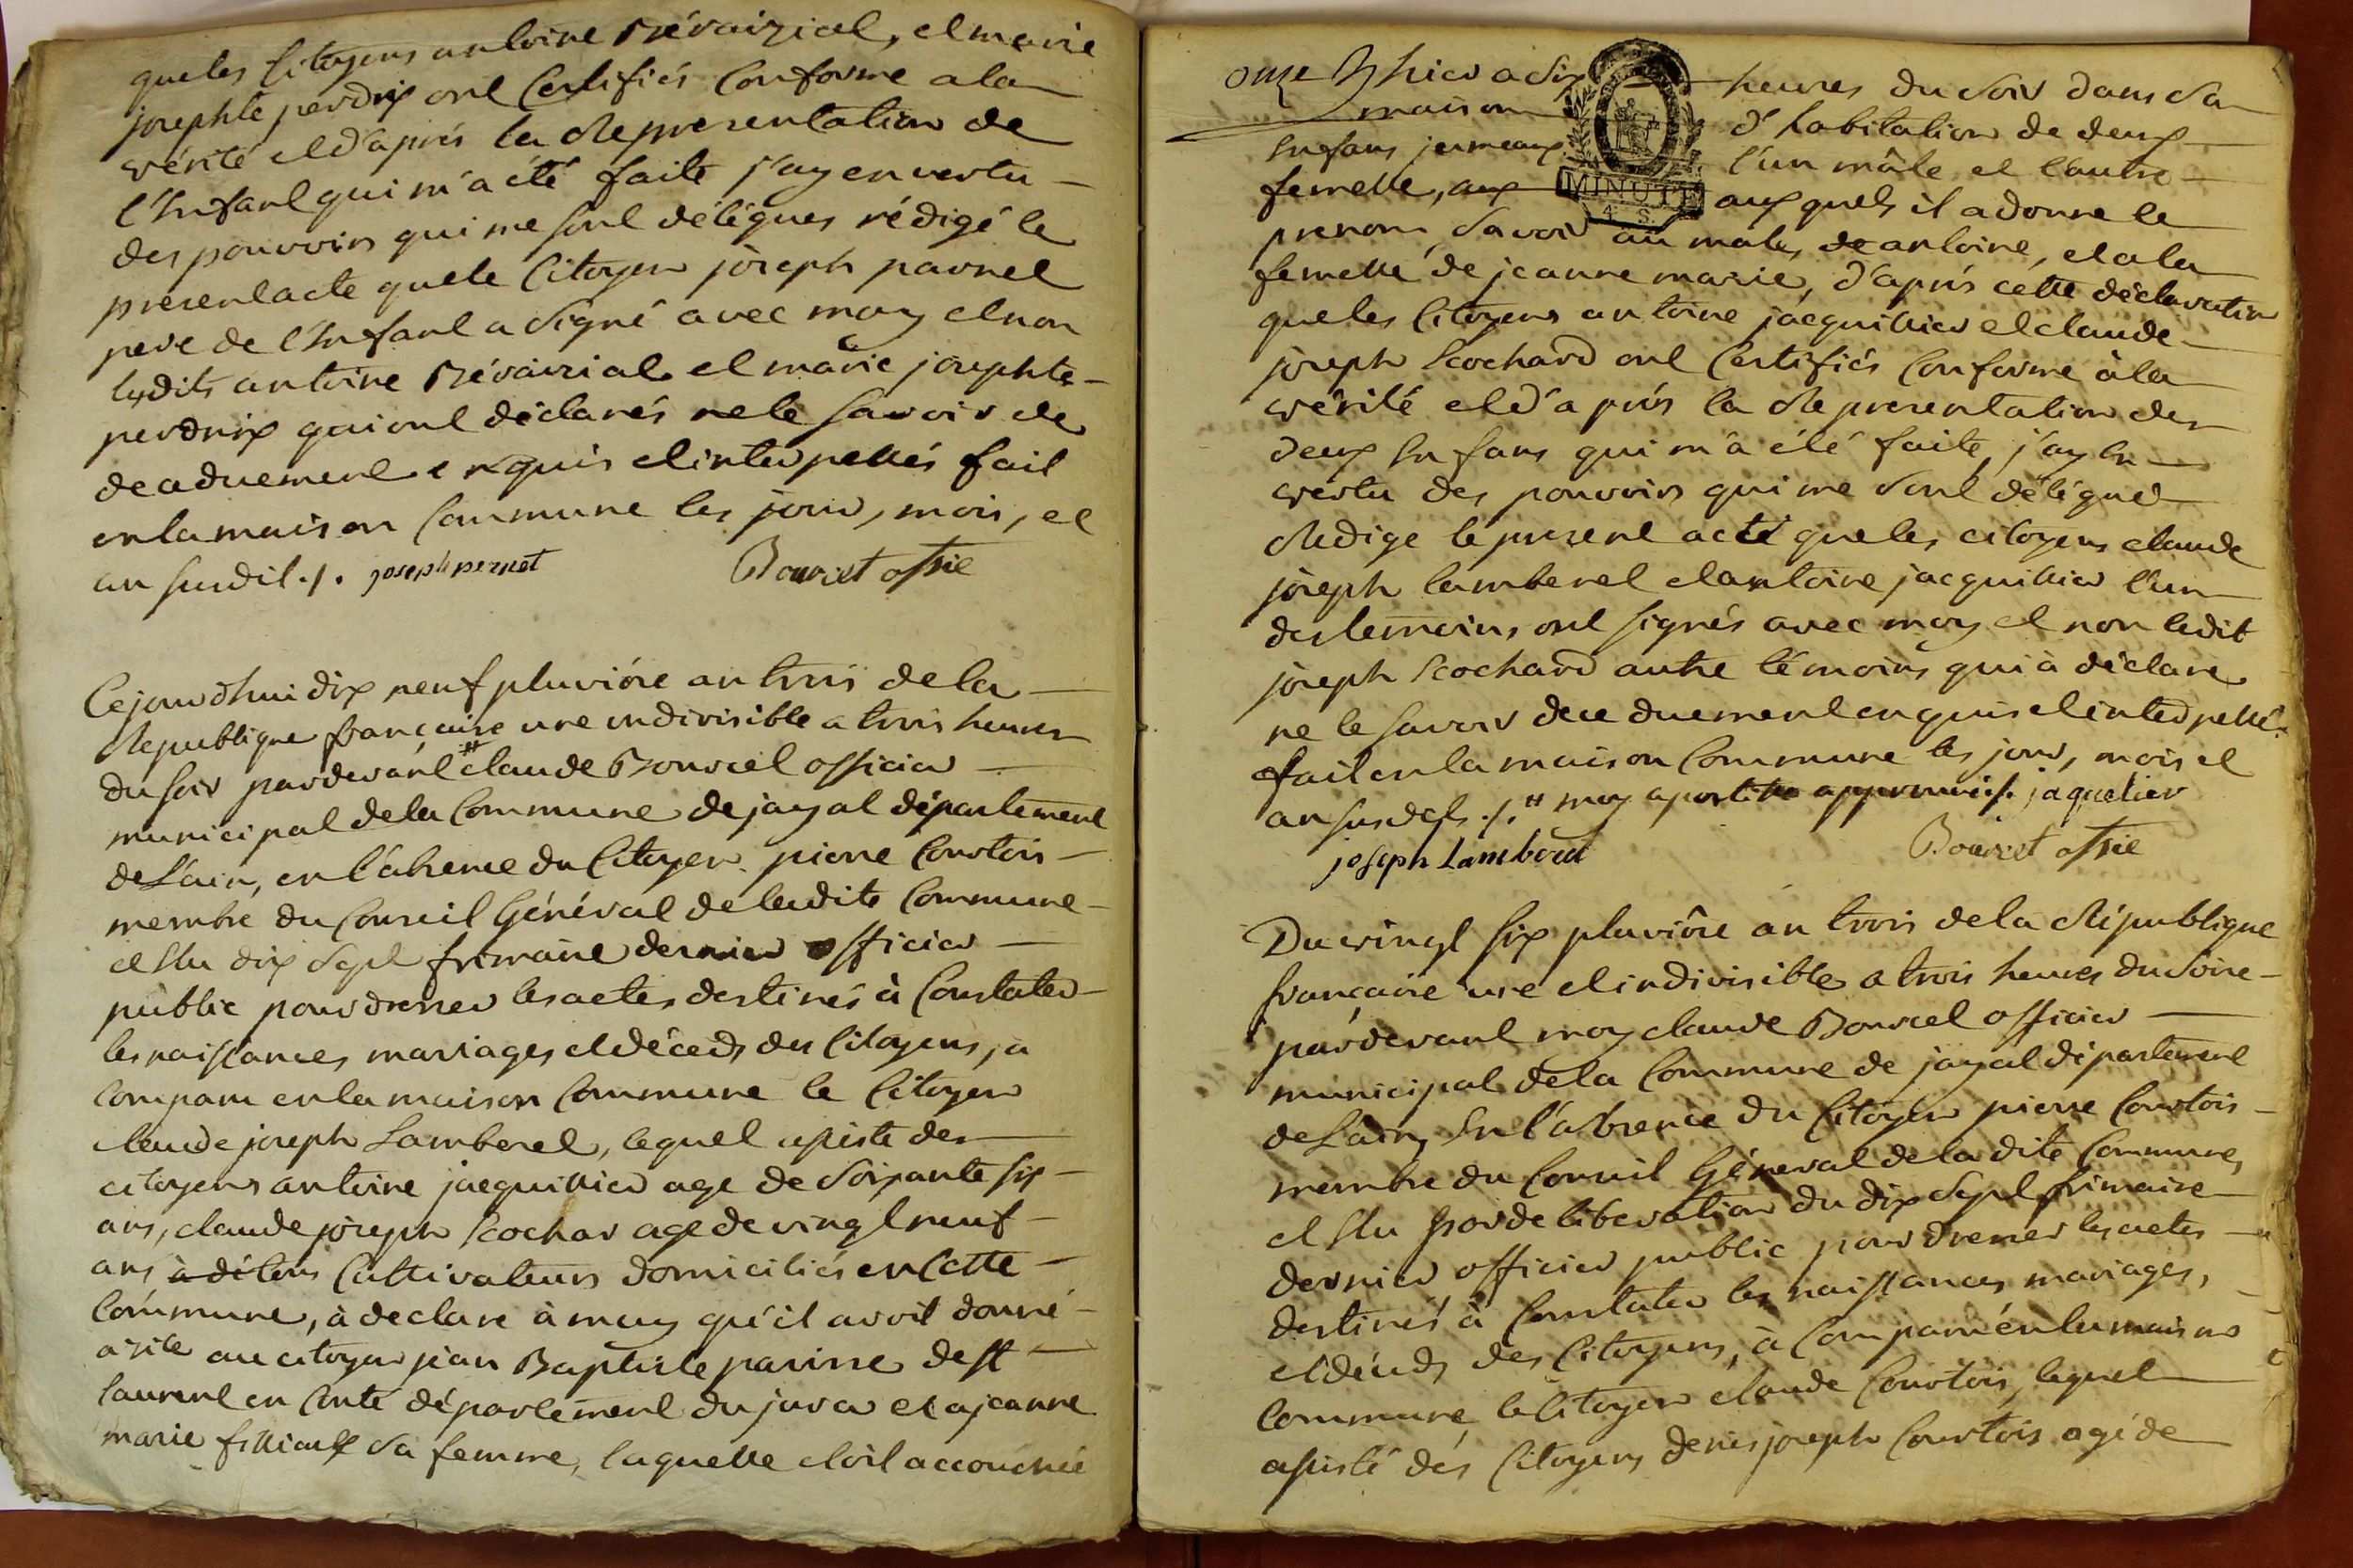 que les Citoyens antoine Révairial, et marie
josephte perdrix ont Certifiés Conforme a la
vérité et d'aprés la Representation de
l'Enfant qui m'a été faite j'ay en vertu
des pouvoirs qui me sont délégues rédigé le
present acte que le Citoyen joseph pernet
pere de l'Enfant a signé avec moy et non
lesdits antoine Révairial et marie josephte
perdrix qui ont déclarés ne le savoir de
de a duement enquis et interpellés fait
en la maison Commune les jour, mois, et
an susdit ./. joseph pernet Bourcet offie
Cejourd'hui dix neuf pluviôse an trois de la
Republique française une indivisible a trois heures
du soir pardevant # claude Bourcet officier
municipal de la Commune de jayat département
de L'ain, en l'absence du Citoyen pierre Courtois
membre du Conseil Général de ladite Commune
et Elu dix sept frimaire dernier officier
public pour dresser les actes destinés à Constater
les naissances mariages et décèds des Citoyens, a
comparu en la maison Commune le Citoyen
claude joseph Lamberet, lequel assisté des
citoyens antoine jacquillier age de soixante six
ans, claude joseph Cochar age de vingt neuf
ans Cultivateurs domiciliés en Cette
Commune, à declare à moy qu'il avoit donné
asile au citoyen jean Baptiste parisse de st
laurent en Conté département du jura et a jeanne
marie sa femme, laquelle étoit accouchée
onze hier a dix heures du soir dans sa
maison d'habitation de deux
Enfans jumeaux l'un mâle et l'autre
femelle, aux auxquels il a donne le
MINUTE
4 S.
prenom, savoir au male, de antoine, et a la
femelle de jeanne marie, d'aprés cette déclaration
que les Citoyens antoine jacquillier et claude
joseph Cochard ont Certifiés Conforme à la
vérité et d'aprés la Representation des
deux Enfans qui m'a été faite, j'ay En
vertu des pouvoirs qui me sont délégués
Redige le present acte que les citoyens claude
joseph lamberet et antoine jacquillier l'un
des temoins ont signés avec moy et non ledit
joseph Cochard autre témoins qui à déclare
ne le savoir de ce duement enquis et interpellé
fait en la maison Commune les jour, mois et
an susdits ./. # moy apostille approuvé ./. jaquelier
joseph Lamberet Bourcet offie
Du vingt six pluviôse an trois de la République
française une et indivisible a trois heures du soire
pardevant moy claude Bourcet officier
municipal de la Commune de jayat département
de L'ain, En l'absence du Citoyen pierre Courtois
membre du Conseil Général de la dite Commune,
et Elu par deliberation du dix sept frimaire
dernier, officier public pour dresser les actes
destinés à Constater les naissances, mariages,
et décèds des Citoyens, à Comparu én la maison
Commune, le Citoyen claude Courtois, lequel
assisté dés Citoyens denis joseph Courtois agé de